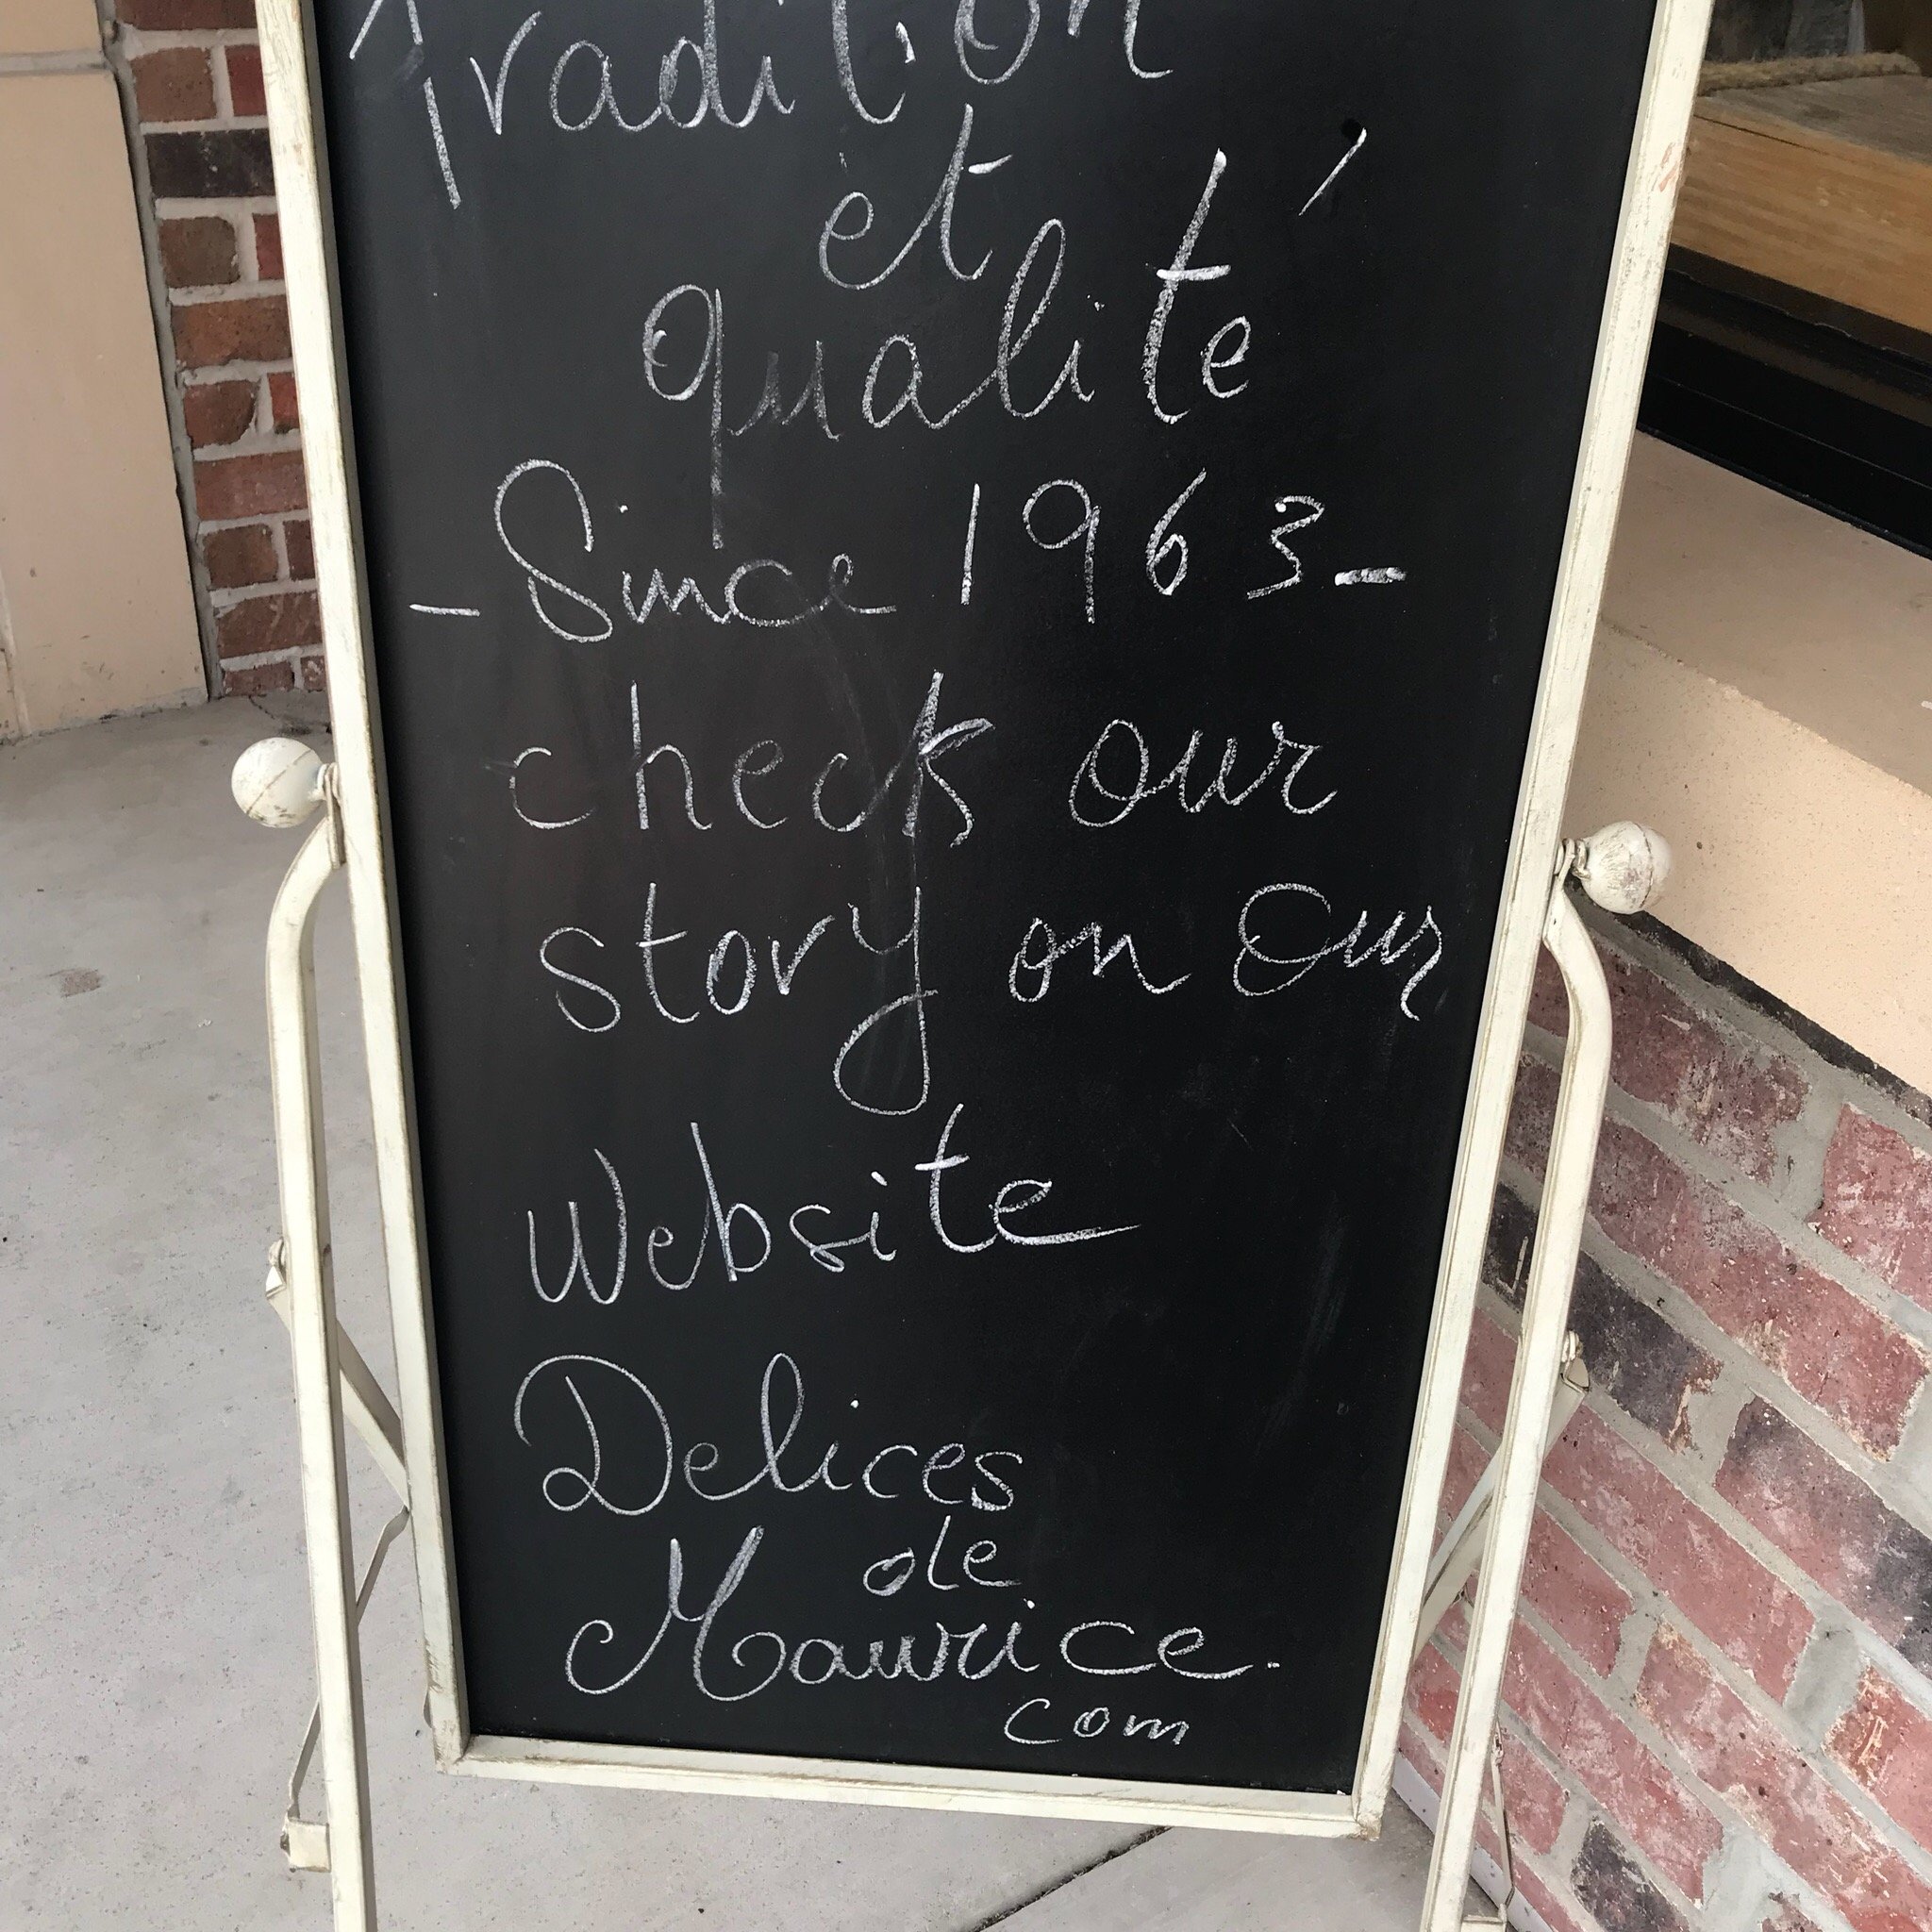 Tradition
et
qualité
- Since 1963 -
check our
story on our
Website
Delices
de
Maurice.
com